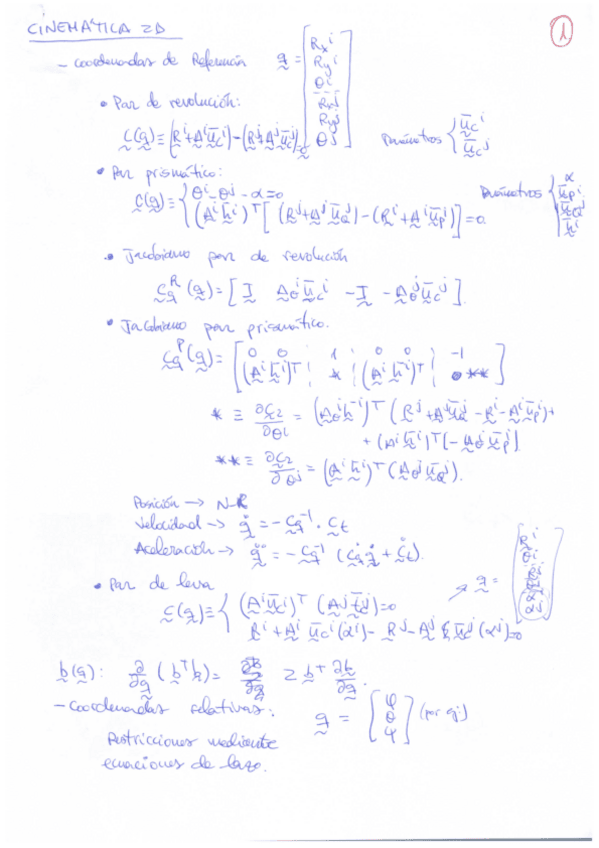 CINEMÁTICA 2D
1
- Coordenadas de Referencia q = [Rxⁱ Ryⁱ θⁱ Rxʲ Ryʲ θʲ]
• Par de revolución:
C(q) ≡ (Rⁱ+Aⁱūcⁱ) - (Rʲ+Aʲūcʲ)=0
Parámetros { ūcⁱ ūcʲ
• Par prismático:
C(q) ≡ { θⁱ - θʲ - α = 0
(Aⁱh̄ⁱ)ᵀ [(Rʲ+AʲūQʲ) - (Rⁱ+Aⁱūpⁱ)] = 0
Parámetros { α ūpⁱ ūQʲ h̄ⁱ
• Jacobiano par de revolución
CqR(q) = [I Aθⁱūcⁱ -I -Aθʲūcʲ].
• Jacobiano par prismático.
CqP(q) = [0 0 | 1 | 0 0 | -1
(Aⁱh̄ⁱ)ᵀ | * | (Aⁱh̄ⁱ)ᵀ | **]
* ≡ ∂C2/∂θi = (Aθⁱh̄ⁱ)ᵀ (Rʲ + AʲūQʲ - Rⁱ - Aⁱūpⁱ) +
+ (Aⁱh̄ⁱ)ᵀ [-Aθⁱūpⁱ]
** ≡ ∂C2/∂θʲ = (Aⁱh̄ⁱ)ᵀ (AθʲūQʲ).
Posición → N-R
Velocidad → q̇ = -Cq⁻¹ · Ct
Aceleración → q̈ = -Cq⁻¹ (Ċq q̇ + Ċt).
• Par de leva
C(q) ≡ { (Aⁱūcⁱ)ᵀ (Aʲt̄ʲ)=0
Rⁱ + Aⁱ ūcⁱ(αⁱ) - Rʲ - Aʲ ūcʲ(αʲ)=0
→ q = [Rⁱ θⁱ
b(q): ∂/∂q (bᵀb) = 2bᵀ ∂b/∂q.
- Coordenadas relativas: q = [φ θ ψ] (por ej.)
Restricciones mediante
ecuaciones de lazo.